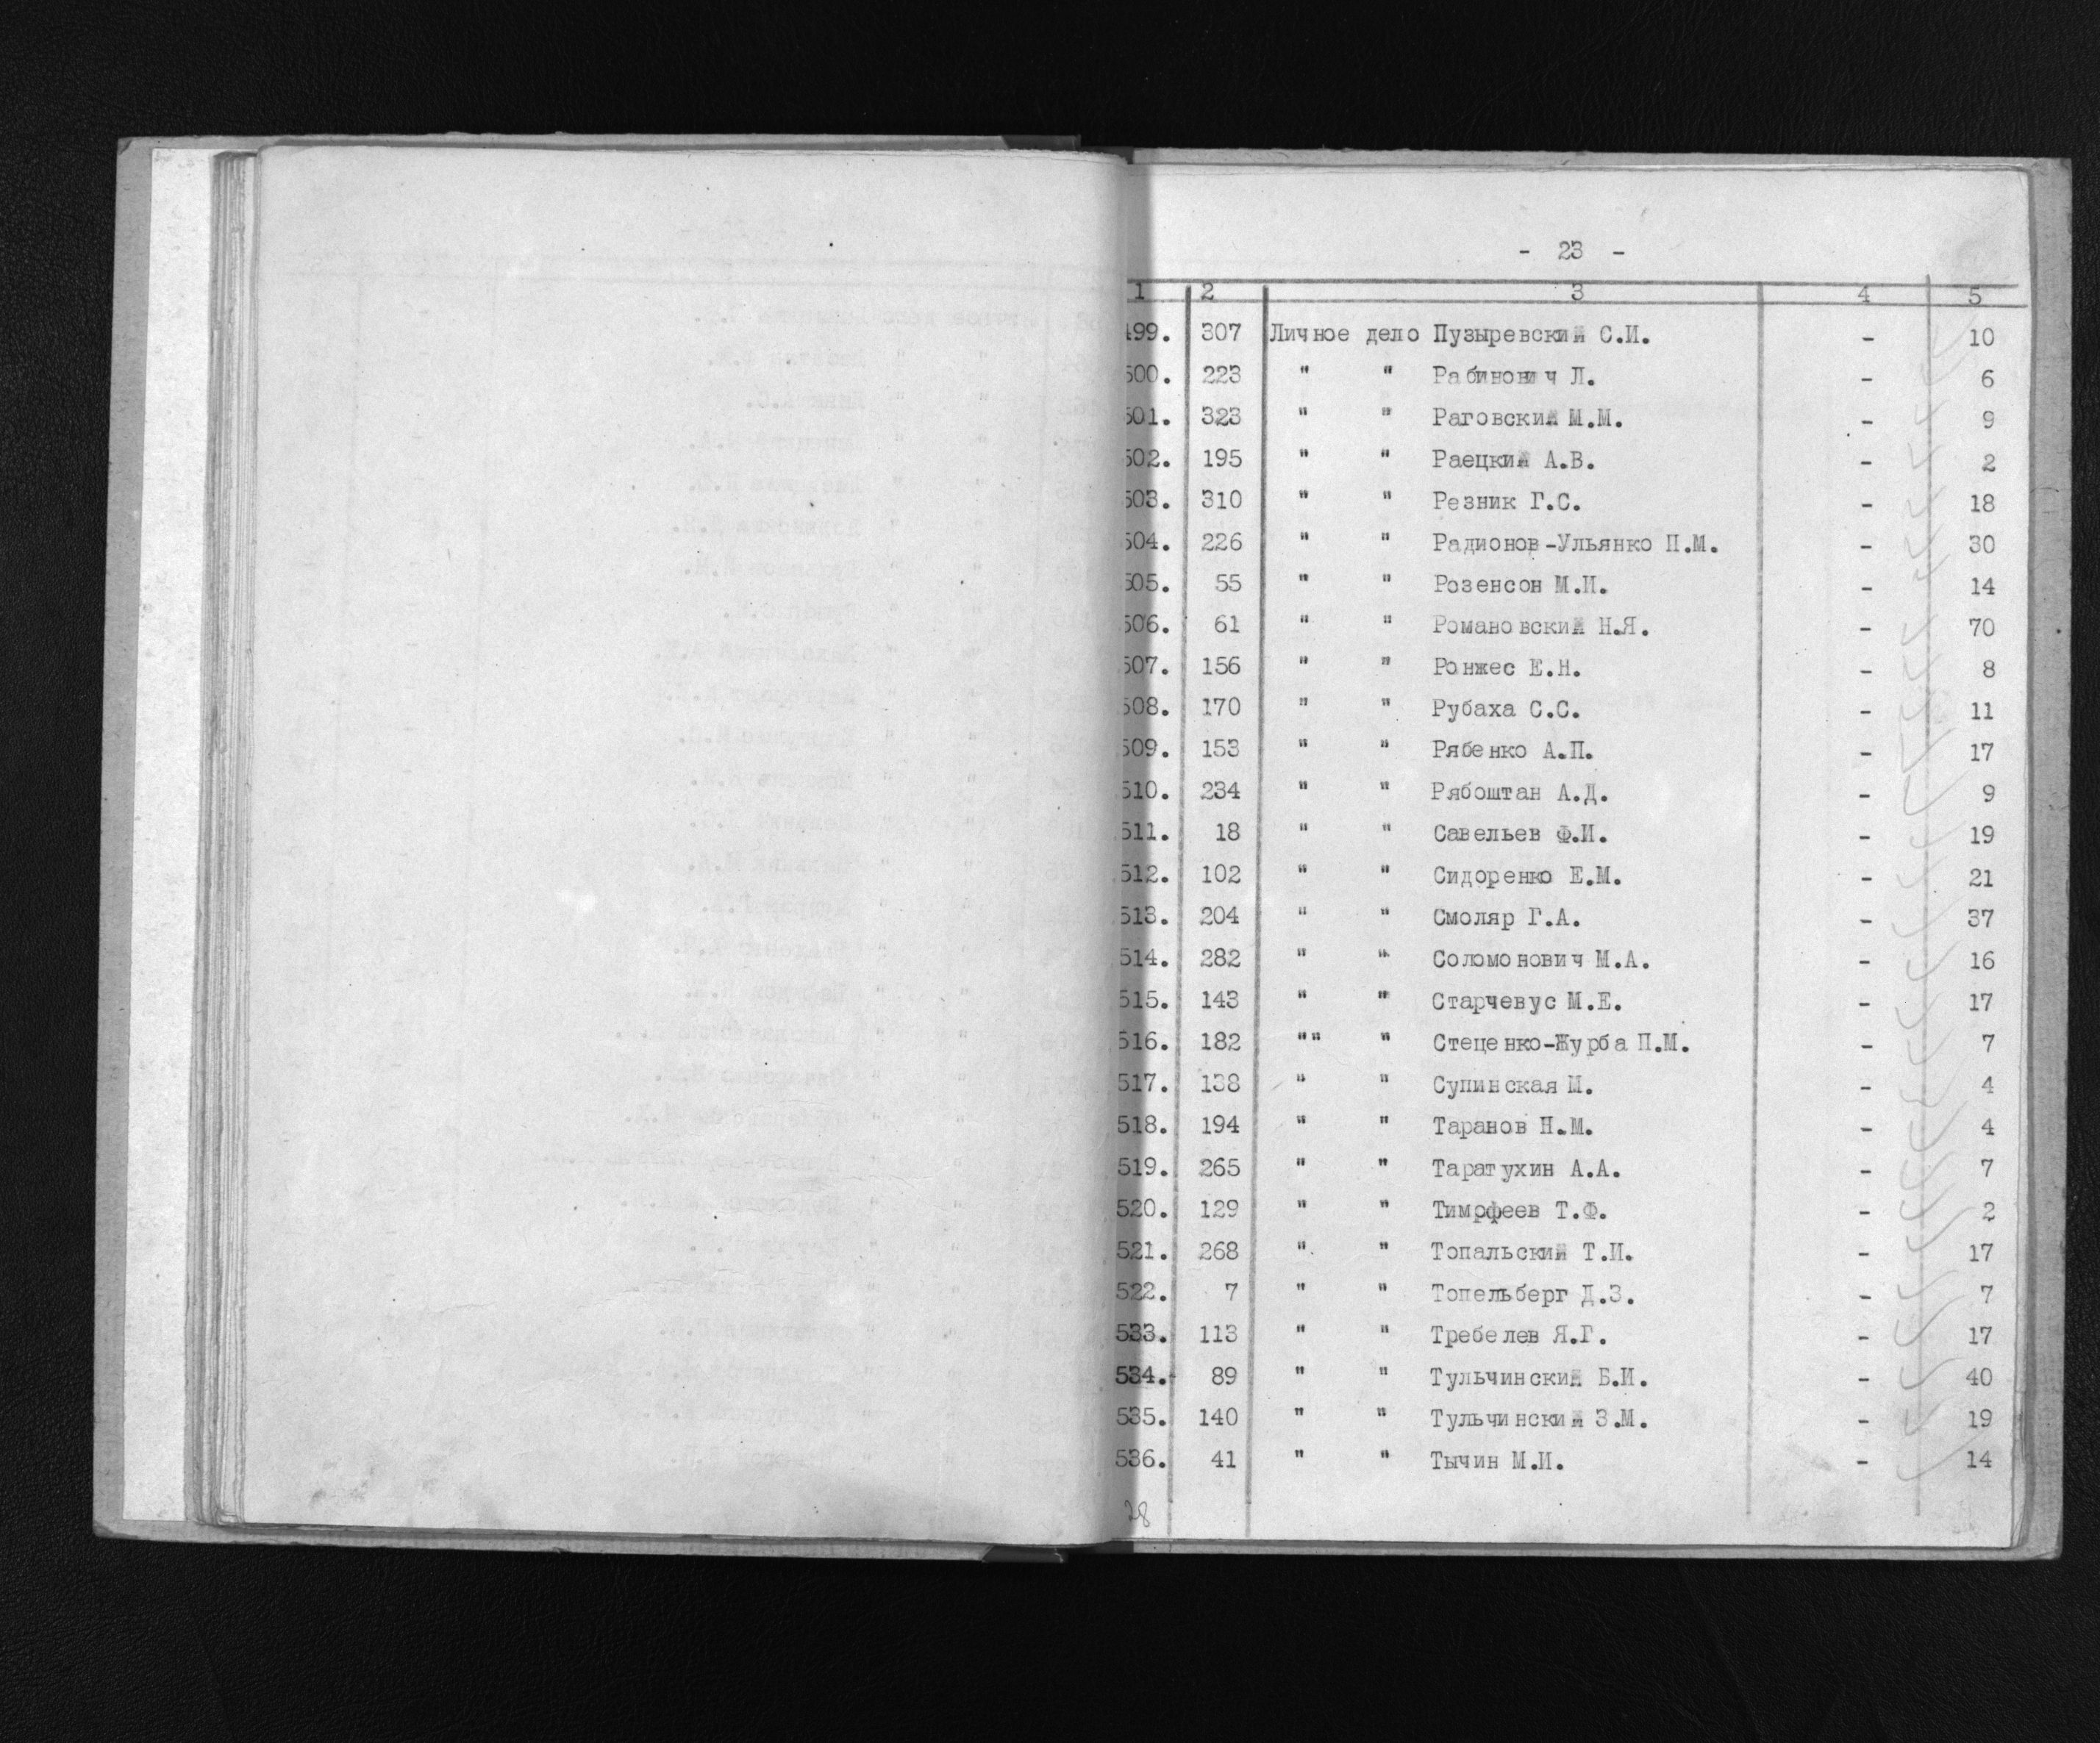 - 23 -
1 2 3 4 5
499. 307 Личное дело Пузыревский С.И. - 10
500. 223 " " Рабинович Л. - 6
501. 323 " " Раговский М.М. - 9
502. 195 " " Раецкий А.В. - 2
503. 310 " " Резник Г.С. - 18
504. 226 " " Радионов-Ульянко П.М. - 30
505. 55 " " Розенсон М.И. - 14
506. 61 " " Романовский Н.Я. - 70
507. 156 " " Ронжес Е.Н. - 8
508. 170 " " Рубаха С.С. - 11
509. 153 " " Рябенко А.П. - 17
510. 234 " " Рябоштан А.Д. - 9
511. 18 " " Савельев Ф.И. - 19
512. 102 " " Сидоренко Е.М. - 21
513. 204 " " Смоляр Г.А. - 37
514. 282 " " Соломонович М.А. - 16
515. 143 " " Старчевус М.Е. - 17
516. 182 "" " Стеценко-Журба П.М. - 7
517. 138 " " Супинская М. - 4
518. 194 " " Таранов Н.М. - 4
519. 265 " " Таратухин А.А. - 7
520. 129 " " Тимофеев Т.Ф. - 2
521. 268 " " Топальский Т.И. - 17
522. 7 " " Топельберг Д.З. - 7
533. 113 " " Требелев Я.Г. - 17
534. 89 " " Тульчинский Б.И. - 40
535. 140 " " Тульчинский З.М. - 19
536. 41 " " Тычин М.И. - 14
28